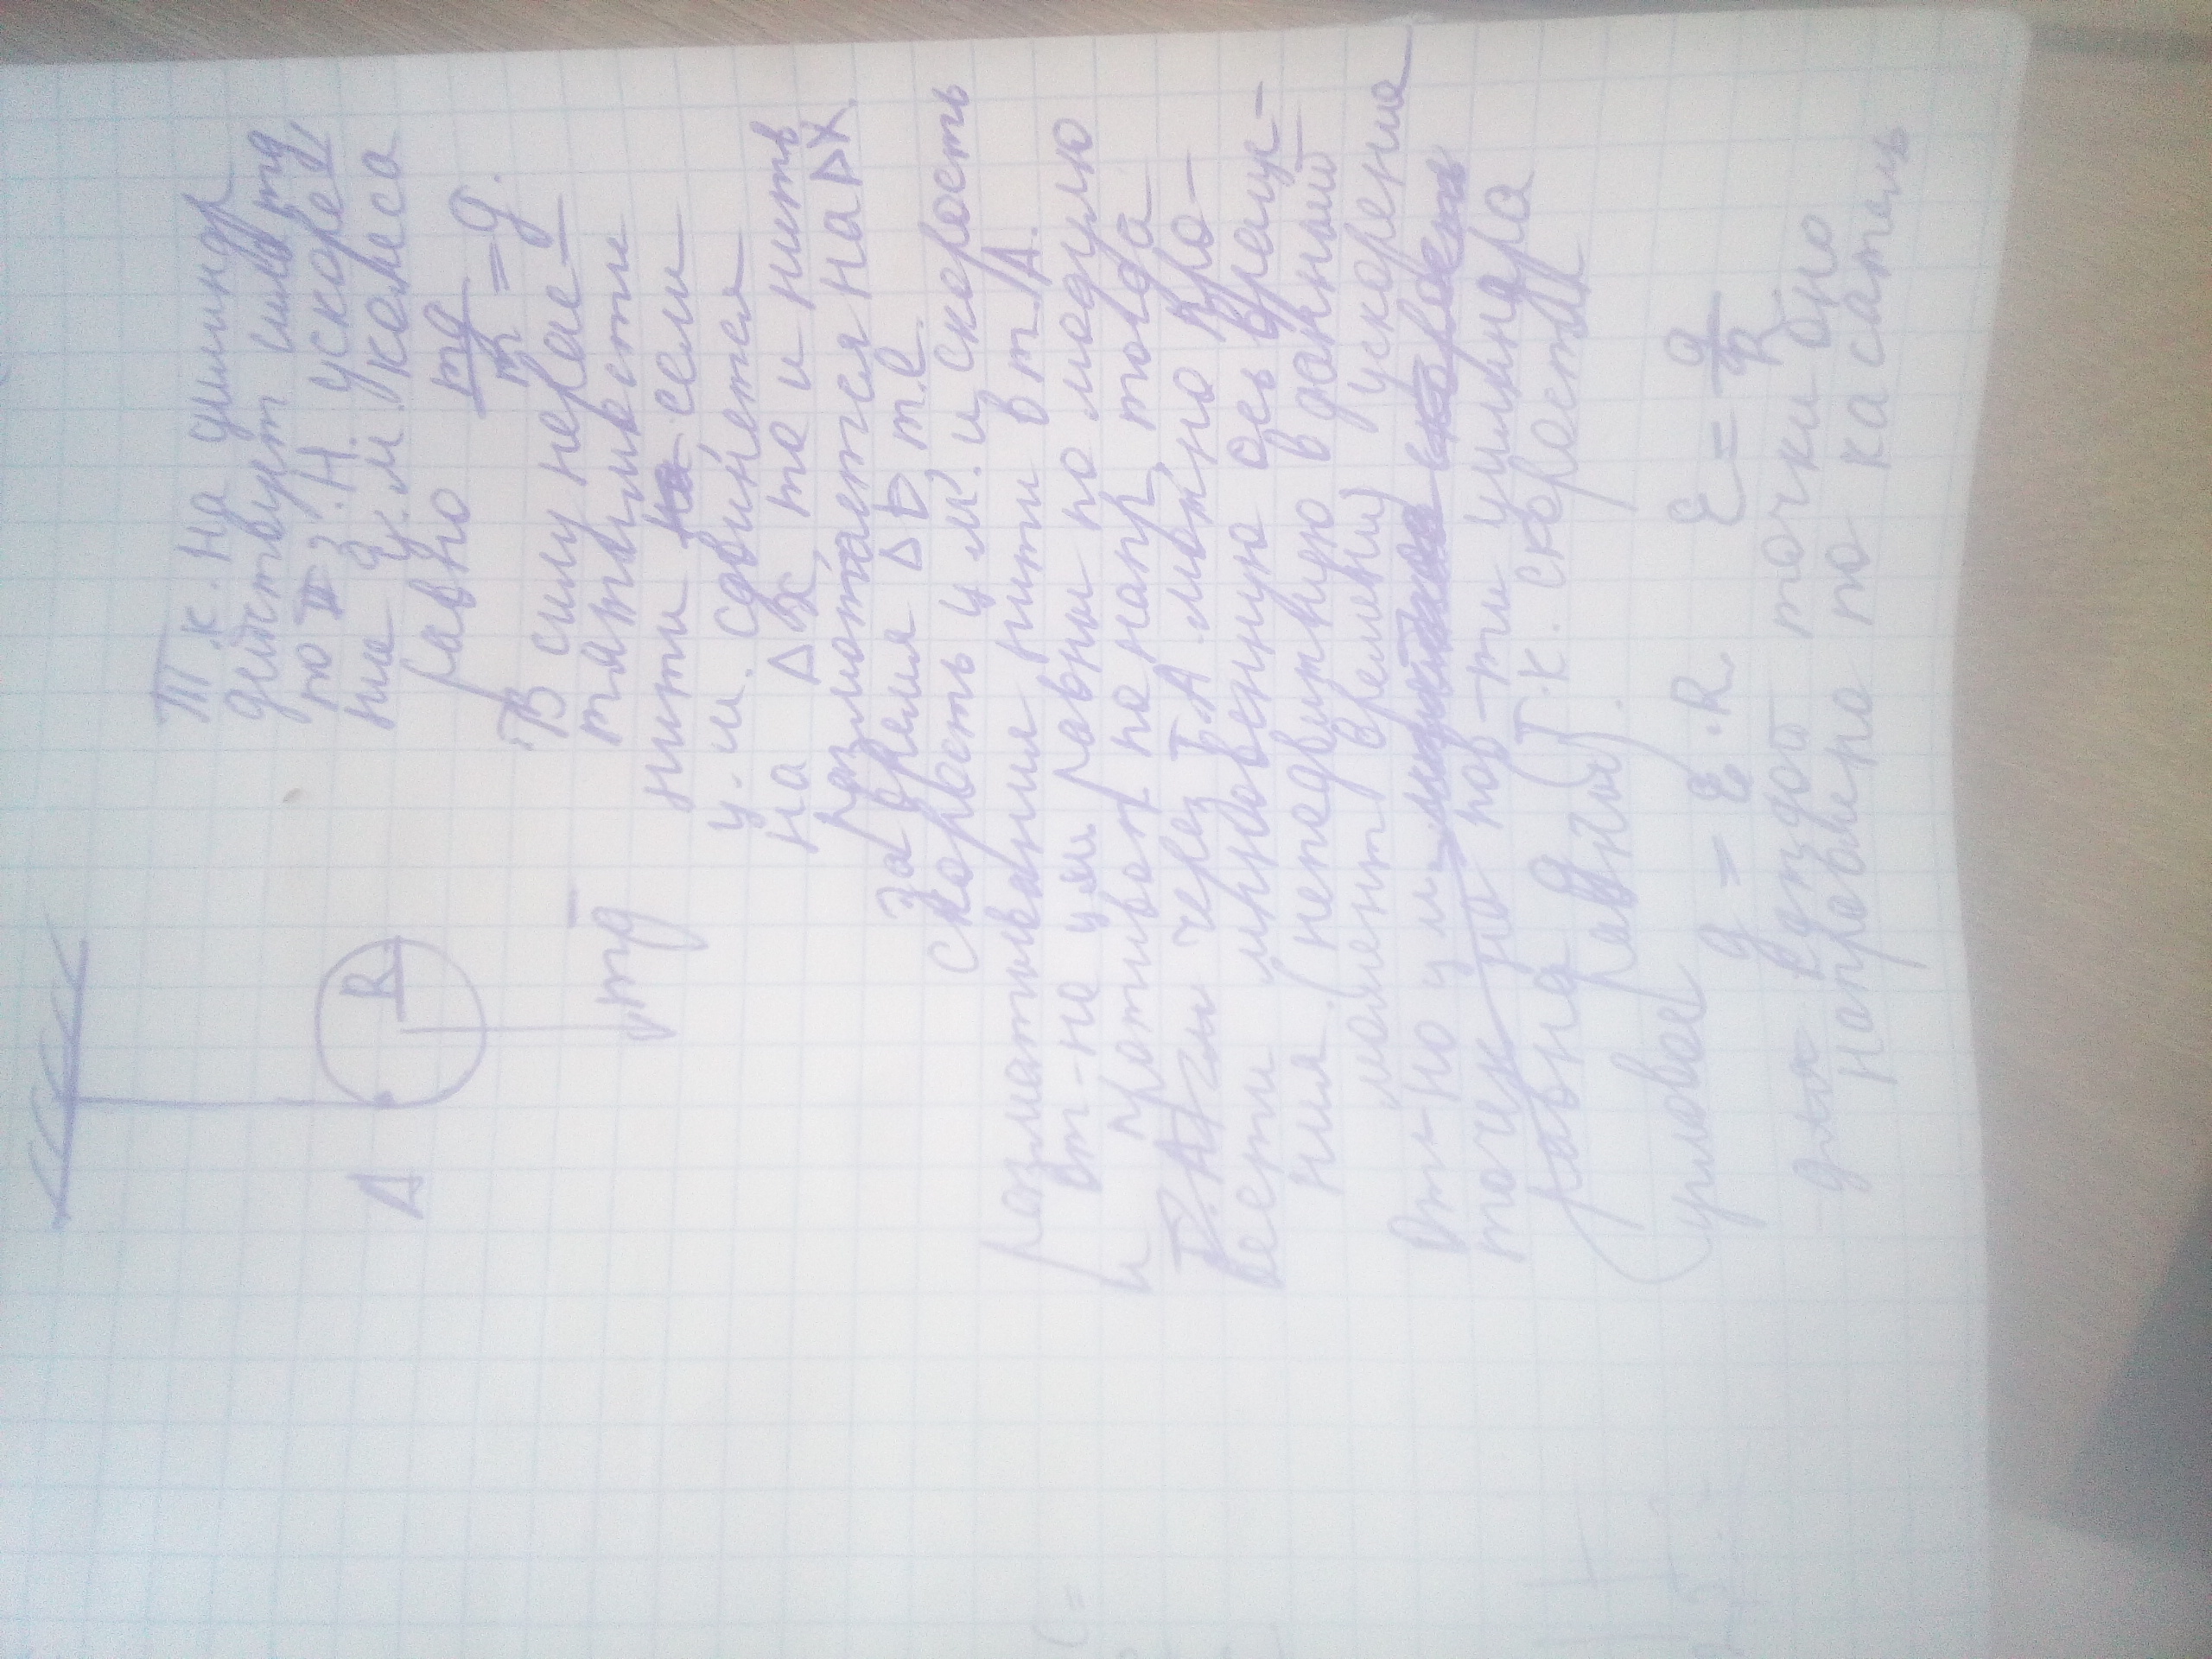 Т.к. на цилиндр
действует сила mg,
по II З.Н. ускоре
ние ц.м. колеса
равно mg/m = g.
A
R
mg
В силу нерас-
тяжимости
нити если
ц.м. сдвинется
на Δx, то и нить
размотается на Δx.
За время Δt т.е.
скорость ц.м. и скорость
разматывания нити в т. А.
от-но цм равны по модулю
и противоп по напр, тогда
Т.А. через Т.А. можно про-
вести мгновенную ось враще-
ния. (неподвижную в данный
момент времени) ускорение
От-но цм
точек на пов-ти цилиндра
равна g (т.к. скорости
равны).
угловая g = ε · R. ε = g/R
для каждой точки оно
направлено по касатель